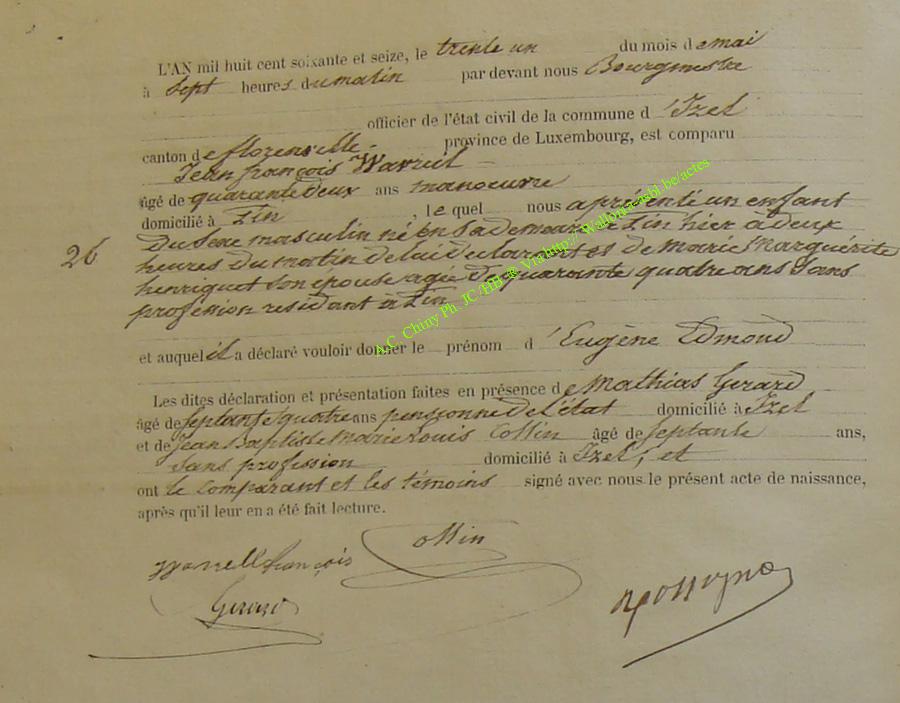 L'AN mil huit cent soixante et seize, le trente un du mois de mai
à sept heures du matin par devant nous Bourgmestre
officier de l'état civil de la commune d'Izel
canton de florenville province de Luxembourg, est comparu
Jean françois
âgé de quarante deux ans manoeuvre
domicilié à , le quel nous a présenté un enfant
26
du sexe masculin né en sa demeure à hier à deux
heures du matin de lui déclarant et de Marie Marguérite
henriquet son épouse agée de quarante quatre ans sans
profession residant à
et auquel il a déclaré vouloir donner le prénom d'Eugène Edmond
Les dites déclaration et présentation faites en présence de Mathias Gerard
âgé de septante quatre ans pensionné de l'état domicilié à Izel
et de Jean Baptiste Marie Louis Collin âgé de septante ans,
sans profession domicilié à Izel, et
ont le comparant et les témoins signé avec nous le présent acte de naissance,
après qu'il leur en a été fait lecture.
Collin
françois
Gerard
A.C. Chiny Ph. JC /HB ® Via http:// Wallonia asbl.be/actes